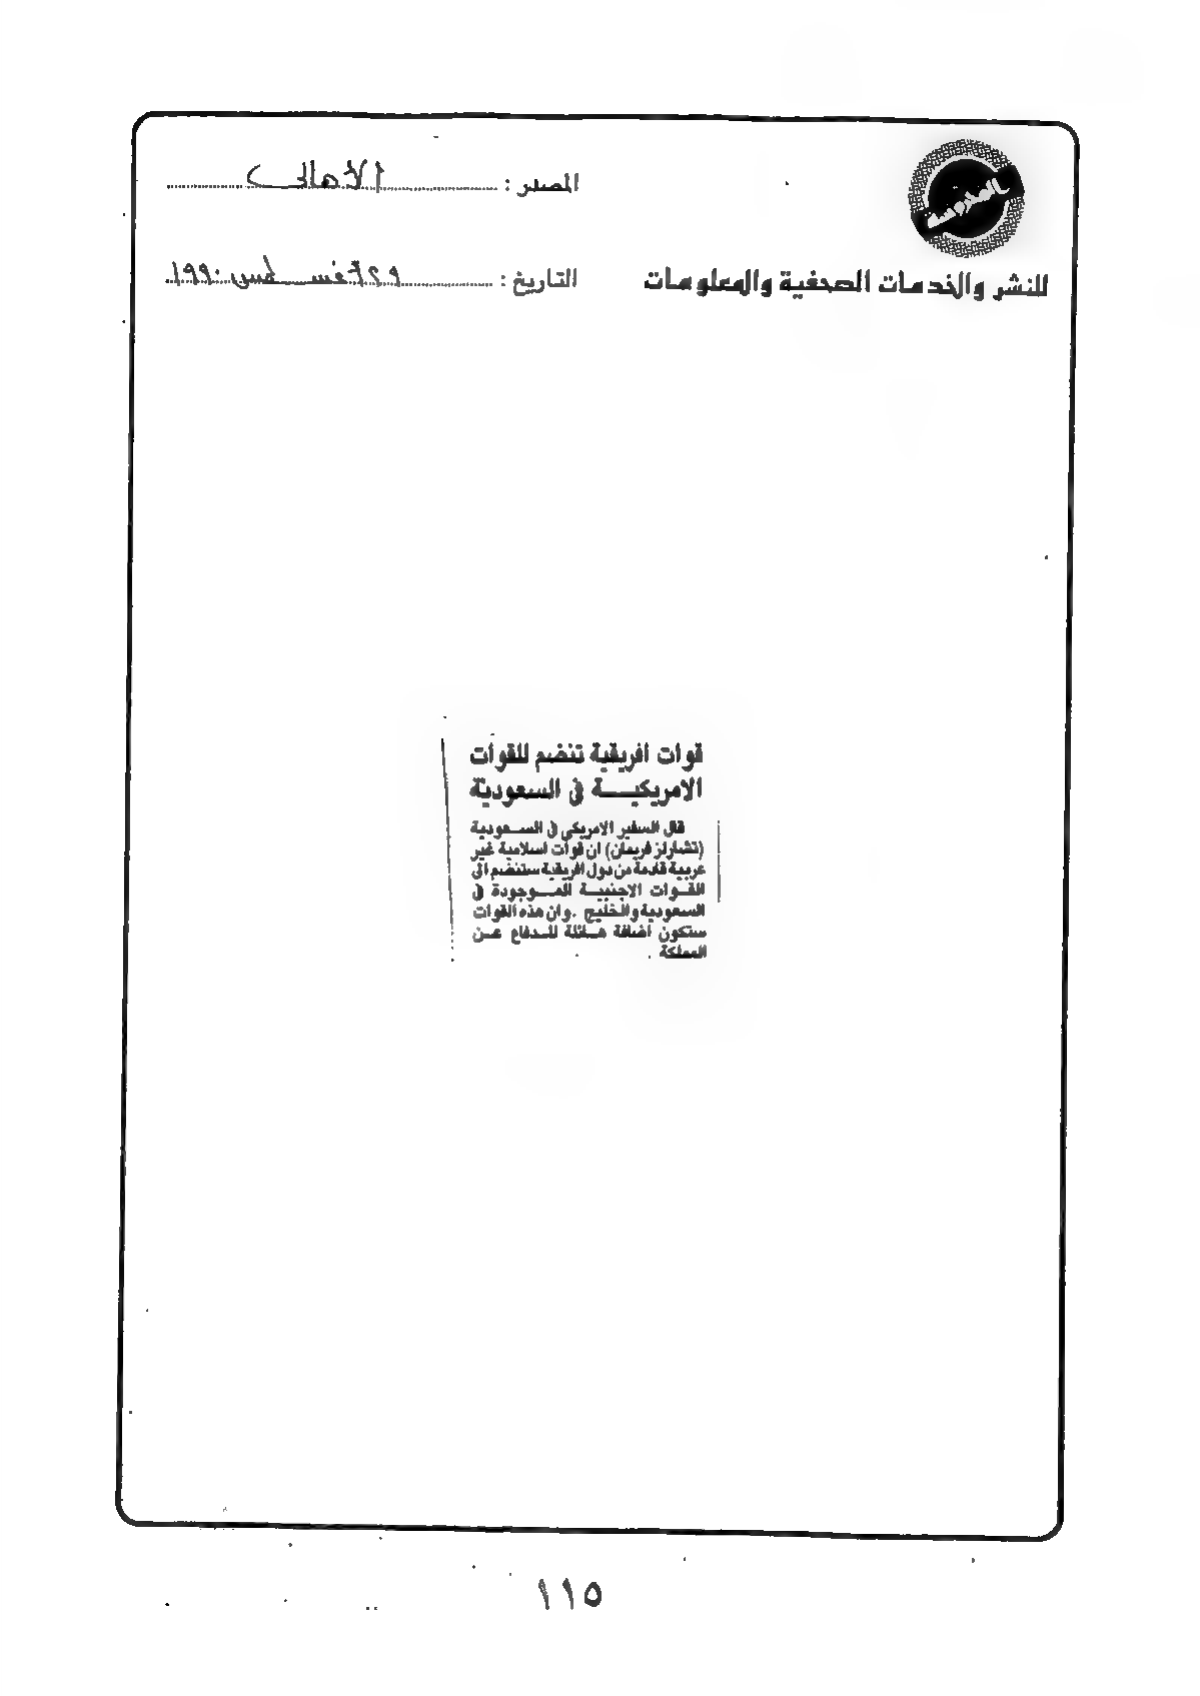 المحروسة
للنشر والخدمات الصحفية والمعلومات
المصدر : الأهالى
التاريخ : ٢٩ أغسطس ١٩٩٠
قوات افريقية تنضم للقوات
الامريكيـــة فى السعودية
قال السفير الامريكى فى السعودية
(تشارلز فريمان) ان قوات اسلامية غير
عربية قادمة من دول افريقية ستنضم الى
القوات الاجنبية الموجودة فى
السعودية والخليج . وان هذه القوات
ستكون اضافة هائلة للدفاع عن
المملكة .
١١٥